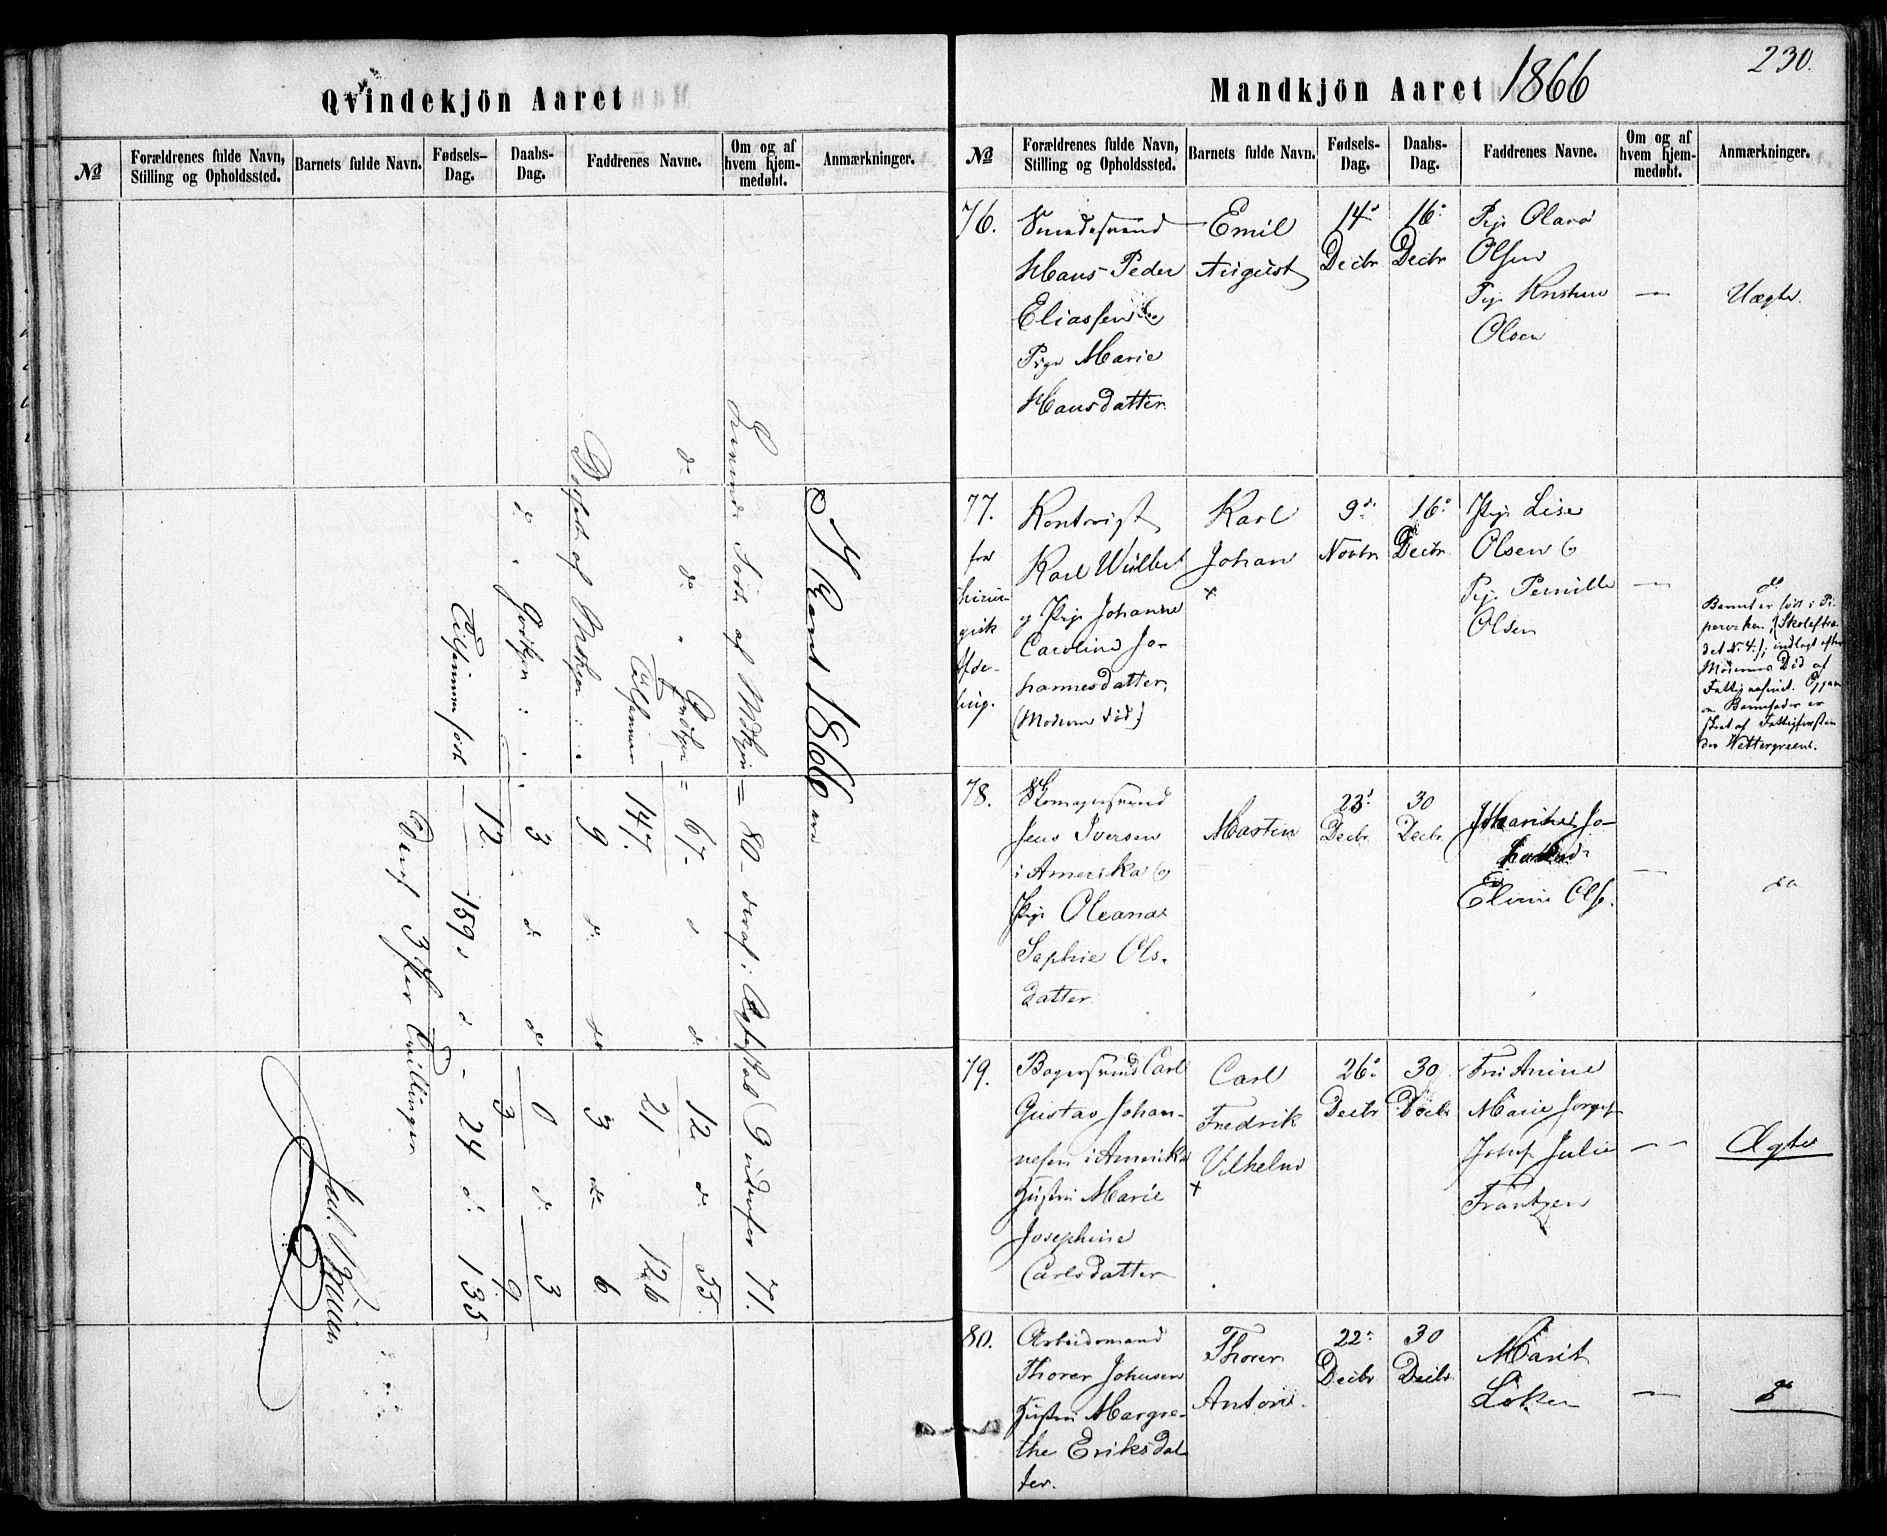 Qvindekjön Aaret
№
Forældrenes fulde Navn,
Stilling og Opholdssted.
Barnets fulde Navn.
Fødsels-
Dag.
Daabs-
Dag.
Faddrenes Navne.
Om og af
hvem hjem-
medøbt.
Anmærkninger.
I Aaret 1866 ere
Levende fødte af Mdkjön = 80 - deraf i Ægteskab 9 udenfor 71.
do do " Qvdkjön = 67 - d d 12 d. 55.
Tilsammen 147. 21 126
Dødfødte af Mdkjön : : 9 do do 3 do 6
d. " Qvdkjön : . 3 d. do 0 d. 3
12. 3 9.
Tilsammen født - 159 d - 24 d. 135
Deraf 3 Par Tvillinger
230.
Mandkjön Aaret 1866
№
Forældrenes fulde Navn,
Stilling og Opholdssted.
Barnets fulde Navn.
Fødsels-
Dag.
Daabs-
Dag.
Faddrenes Navne.
Om og af
hvem hjem-
medøbt.
Anmærkninger.
76.
Smedesvend
Hans Peder
Eliassen &
Pige Marie
Hansdatter
Emil
August
14d
Decbr
16d
Decbr
Pige Olava
Olsen
Pige Kristine
Olsen
—
Uægte.
77.
fra
kirur-
gisk
Afde-
ling.
Kontorist
Karl Wülbert
og Pige Johanne
Caroline Jo-
hannesdatter,
(Moderen død)
Karl
Johan
×
9de
Novbr
16d
Decbr
Pige Lise
Olsen &
Pige Pernille
Olsen
—
do
Barnet er født i Pi-
perviken (Skolestræ-
det No 4); indlagt efter
Moderens Død af
Fattigvæsenet. Opgave
om Barnefader er
skeet af Fattigforstan-
der Wettergreen.
78.
Skomagersvend
Jens Iversen
i Amerika &
Pige Oleana
Sophie Ols-
datter
Martin
23d
Decbr
30
Decbr
Elevine Ols.
—
do
79.
Bagersvend Carl
Gustav Johan-
nesen i Amerika
Hustru Marie
Josephine
Carlsdatter
Carl
Fredrik
Vilhelm
×
26d
Decbr
30
Decbr
Fru Anine
Marie
Jomf Julie
Frantzen
— —
Ægte
80.
Arbeidsmand
Thorer Johnsen
Hustru Margre-
the Eriksdat-
ter.
Thorer
Anton.
22d
Decbr
30
Decbr
Marit
Löken
—
do